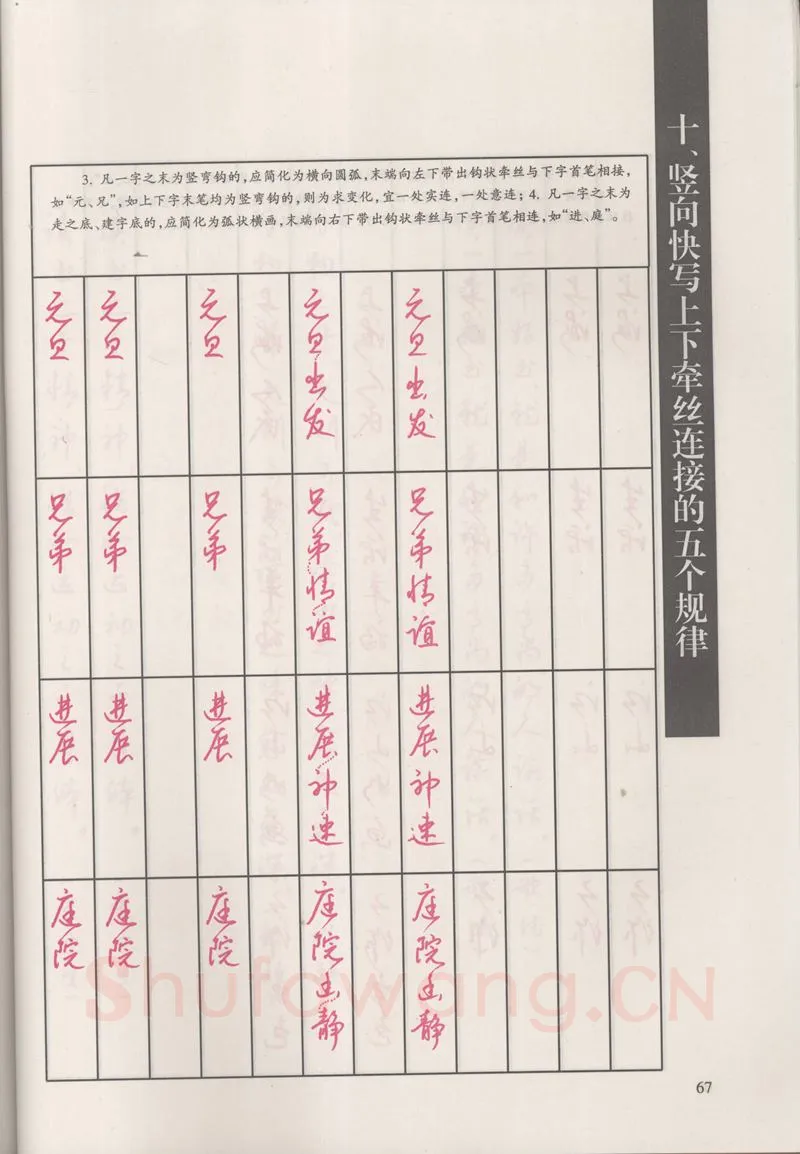 十、竖向快写上下牵丝连接的五个规律
3. 凡一字之末为竖弯钩的,应简化为横向圆弧,末端向左下带出钩状牵丝与下字首笔相接,
如“元、兄”,如上下字末笔均为竖弯钩的,则为求变化,宜一处实连,一处意连;4. 凡一字之末为
走之底、建字底的,应简化为弧状横画,末端向右下带出钩状牵丝与下字首笔相连,如“进、庭”。
元旦
元旦
元旦
元旦出发
元旦出发
兄弟
兄弟
兄弟
兄弟情谊
兄弟情谊
进展
进展
进展
进展神速
进展神速
庭院
庭院
庭院
庭院幽静
庭院幽静
Shufawang.CN
67